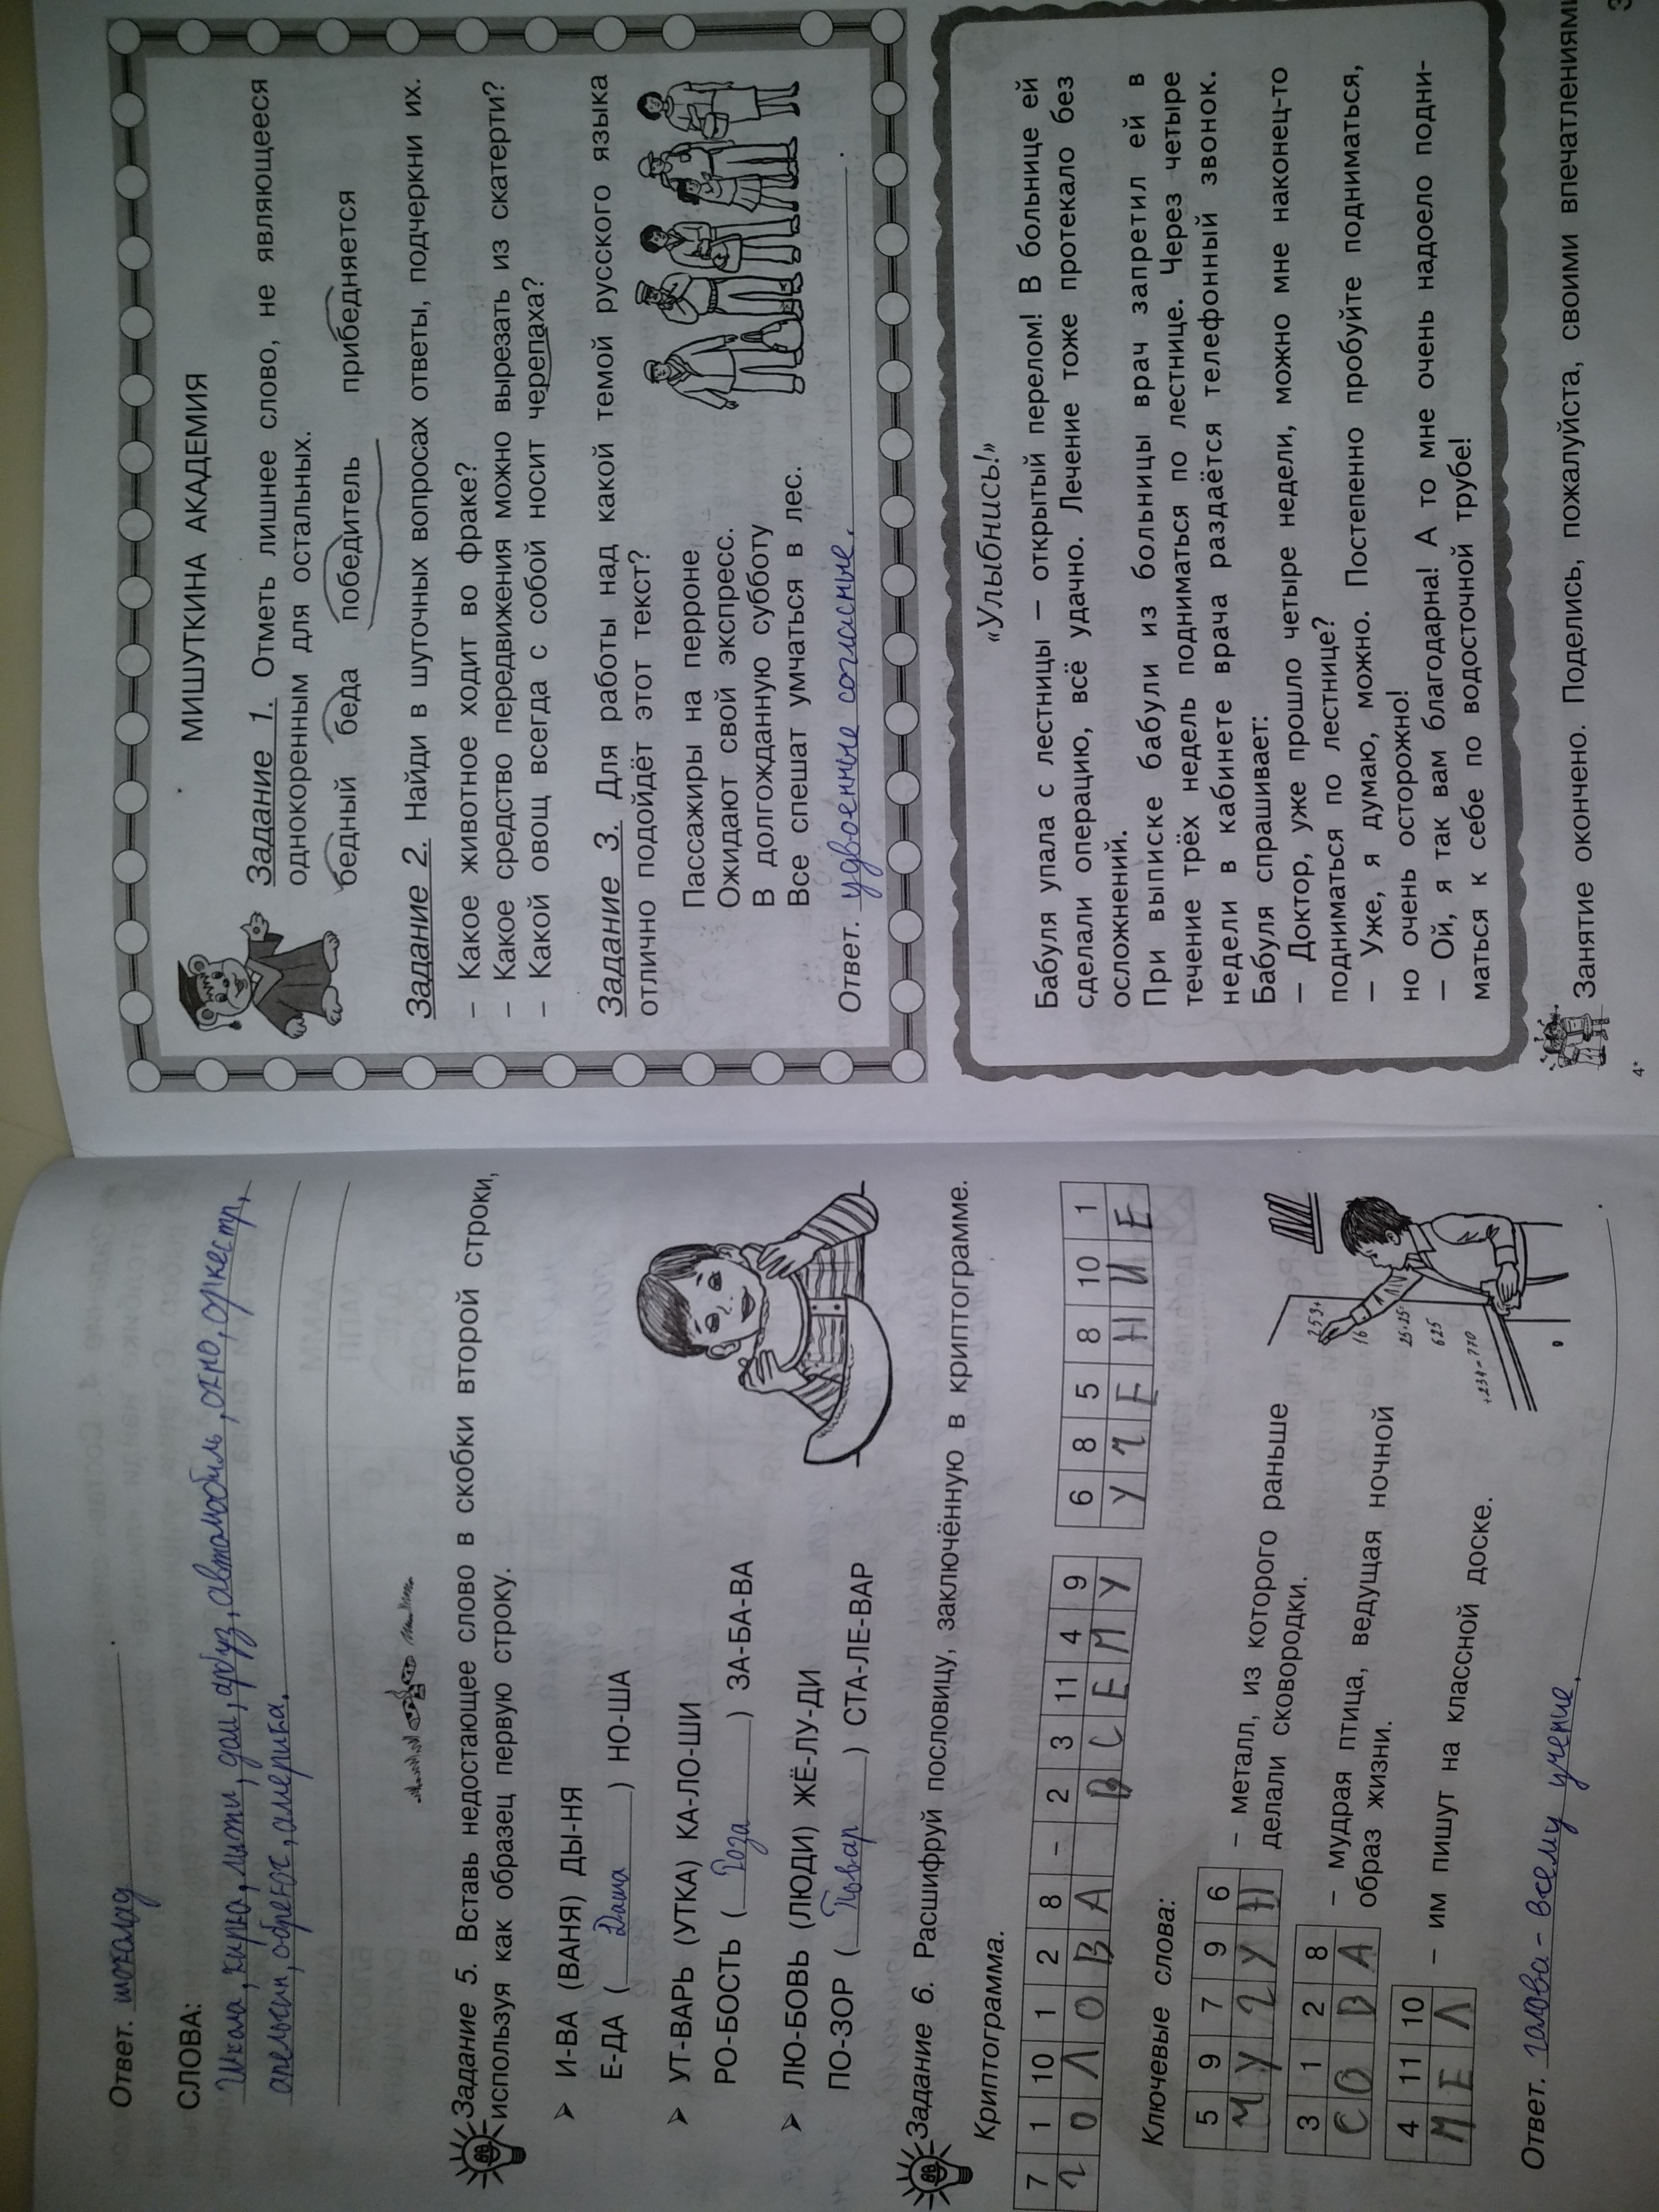 Ответ. шоколад.
СЛОВА:
Школа, кирка, лыжи, дом, арбуз, автомобиль, окно, оркестр,
апельсин, абрекос, америка.
Задание 5. Вставь недостающее слово в скобки второй строки,
используя как образец первую строку.
➤ И-ВА (ВАНЯ) ДЫ-НЯ
Е-ДА ( Даша ) НО-ША
➤ УТ-ВАРЬ (УТКА) КА-ЛО-ШИ
РО-БОСТЬ ( Роза ) ЗА-БА-ВА
➤ ЛЮ-БОВЬ (ЛЮДИ) ЖЁ-ЛУ-ДИ
ПО-ЗОР ( Повар ) СТА-ЛЕ-ВАР
Задание 6. Расшифруй пословицу, заключённую в криптограмме.
Криптограмма.
7 1 10 1 2 8 - 2 3 11 4 9 6 8 5 8 10 1
Г О Л О В А В С Е М У У Ч Е Н И Е
Ключевые слова:
5 9 7 9 6 – металл, из которого раньше
М У Г У Н делали сковородки.
3 1 2 8 – мудрая птица, ведущая ночной
С О В А образ жизни.
4 11 10 – им пишут на классной доске.
М Е Л
253+
16
25·25·
625
+234=770
Ответ. голова - всему учение.
МИШУТКИНА АКАДЕМИЯ
Задание 1. Отметь лишнее слово, не являющееся
однокоренным для остальных.
бедный беда победитель прибедняется
Задание 2. Найди в шуточных вопросах ответы, подчеркни их.
– Какое животное ходит во фраке?
– Какое средство передвижения можно вырезать из скатерти?
– Какой овощ всегда с собой носит черепаха?
Задание 3. Для работы над какой темой русского языка
отлично подойдёт этот текст?
Пассажиры на перроне
Ожидают свой экспресс.
В долгожданную субботу
Все спешат умчаться в лес.
Ответ. удвоенные согласные.
«Улыбнись!»
Бабуля упала с лестницы – открытый перелом! В больнице ей
сделали операцию, всё удачно. Лечение тоже протекало без
осложнений.
При выписке бабули из больницы врач запретил ей в
течение трёх недель подниматься по лестнице. Через четыре
недели в кабинете врача раздаётся телефонный звонок.
Бабуля спрашивает:
– Доктор, уже прошло четыре недели, можно мне наконец-то
подниматься по лестнице?
– Уже, я думаю, можно. Постепенно пробуйте подниматься,
но очень осторожно!
– Ой, я так вам благодарна! А то мне очень надоело подни-
маться к себе по водосточной трубе!
Занятие окончено. Поделись, пожалуйста, своими впечатлениями
4*